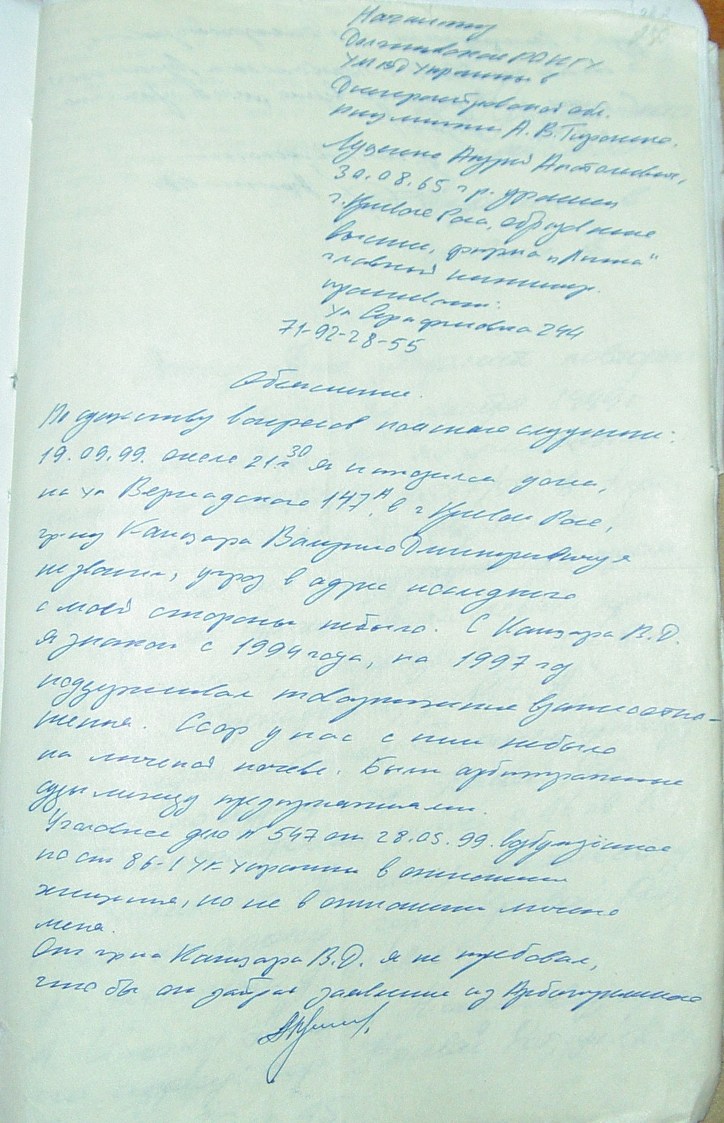 Начальнику
Долгинцевского РО КГУ
УМВД Украины в
Днепропетровской обл.
А. В. Тироненко.
Луценко Андрей Анатольевич,
30.08.65 г.р. уроженец
г. Кривого Рога, образование
высшее, фирма „Анна"
главный инженер.
проживает:
ул Серафимовича 244
71-92-28-55
Объяснение.
По существу вопросов поясняю следующее:
19.09.99. около 21 30 я находился дома,
на ул Вернадского 147А, в г Кривом Роге,
гр-ну Канзара Валерию Дмитриевичу я
не звонил, угроз в адрес последнего
с моей стороны небыло. С Канзара В.Д.
я знаком с 1994 года, по 1997 год
поддерживал товарищеские взаимоотно-
шения. Ссор у нас с ним небыло
на личной почве. Были арбитражные
суды между предприятиями.
Уголовное дело № 547 от 28.05.99. возбуждённое
по ст 86-1 УК Украины в отношении
хищения, но не в отношении лично
меня.
От гр-на Канзара В.Д. я не требовал,
что бы он забрал заявление из Арбитражного